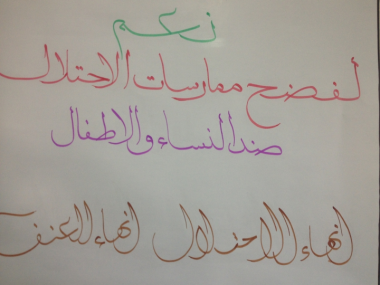 نعم
لفضح ممارسات الاحتلال
ضد النساء والاطفال
انهاء الاحتلال انهاء العنف